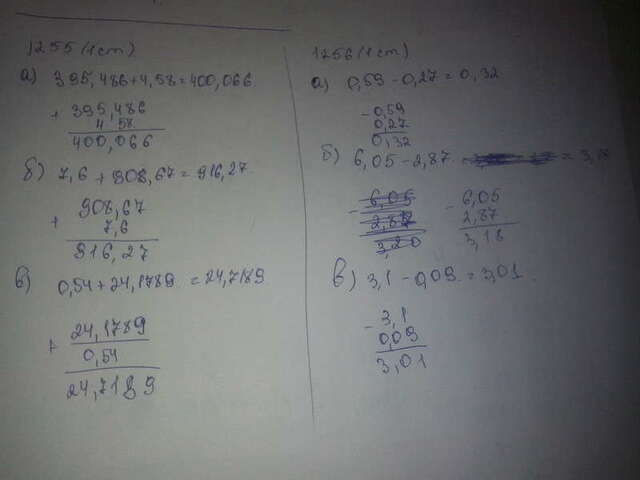 1255 (1 ст)
а) 395,486+4,58=400,066
+ 395,486
4 58
400,066
б) 7,6 + 908,67 = 916,27.
+ 908,67
7,6
916,27
в) 0,54 + 24,1789 = 24,7189.
+ 24,1789
0,54
24,7189
1256 (1 ст)
а) 0,59 - 0,27 = 0,32
- 0,59
0,27
0,32
б) 6,05 - 2,87 = 3,18
- 6,05
2,87
3,20
- 6,05
2,87
3,18
в) 3,1 - 0,09 = 3,01.
- 3,1
0,09
3,01